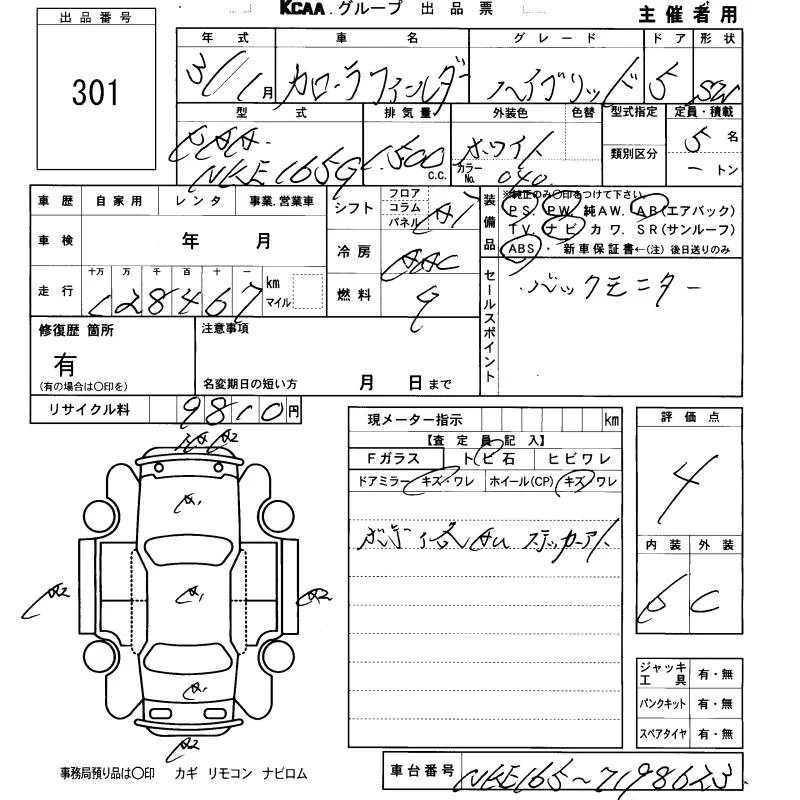 KCAA.グループ 出品票
主催者用
出品番号
301
年式 車名 グレード ドア 形状
3/1月 カローラフィールダー ハイブリッド 5 SW
型式 排気量 外装色 色替 型式指定 定員・積載
DAA-
NKE165G 1500 C.C. ホワイト 類別区分 5名
カラーNo. 040 ートン
車歴 自家用 レンタ 事業.営業車
シフト フロア コラム パネル AT
装備品
※純正のみ〇印をつけて下さい
PS. PW. 純AW. AB(エアバック)
TV. ナビ カワ. SR(サンルーフ)
ABS・新車保証書←(注)後日送りのみ
車検 年 月
冷房 AAC
走行 十万 万 千 百 十 一 km マイル
128467
燃料 G
セールスポイント
バックモニター
修復歴 箇所
有
(有の場合は〇印を)
注意事項
名変期日の短い方 月 日まで
リサイクル料 9810円
現メーター指示 km
【査定員記入】
Fガラス トビ石 ヒビワレ
ドアミラー キズ・ワレ ホイール(CP) キズ ワレ
ステッカーアト
評価点
4
内装 外装
C
A2
A1
A2 A1 A2
A1
A2
ジャッキ工具 有・無
パンクキット 有・無
スペアタイヤ 有・無
事務局預り品は〇印 カギ リモコン ナビロム
車台番号 NKE165-7198623